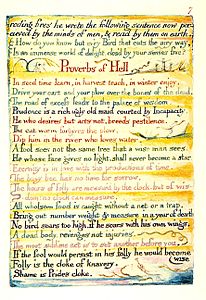 roding fires he wrote the following sentence now per
cieved by the minds of men, & read by them on earth.
How do you know but ev'ry Bird that cuts the airy way,
Is an immense world of delight, clos'd by your senses five?
Proverbs of Hell
In seed time learn, in harvest teach, in winter enjoy.
Drive your cart and your plow over the bones of the dead.
The road of excess leads to the palace of wisdom.
Prudence is a rich ugly old maid courted by Incapacity.
He who desires but acts not, breeds pestilence.
The cut worm forgives the plow.
Dip him in the river who loves water.
A fool sees not the same tree that a wise man sees.
He whose face gives no light, shall never become a star.
Eternity is in love with the productions of time.
The busy bee has no time for sorrow.
The hours of folly are measur'd by the clock, but of wis-
-dom: no clock can measure.
All wholsom food is caught without a net or a trap.
Bring out number weight & measure in a year of dearth
No bird soars too high, if he soars with his own wings.
A dead body, revenges not injuries.
The most sublime act is to set another before you.
If the fool would persist in his folly he would become
wise
Folly is the cloke of knavery.
Shame is Prides cloke.